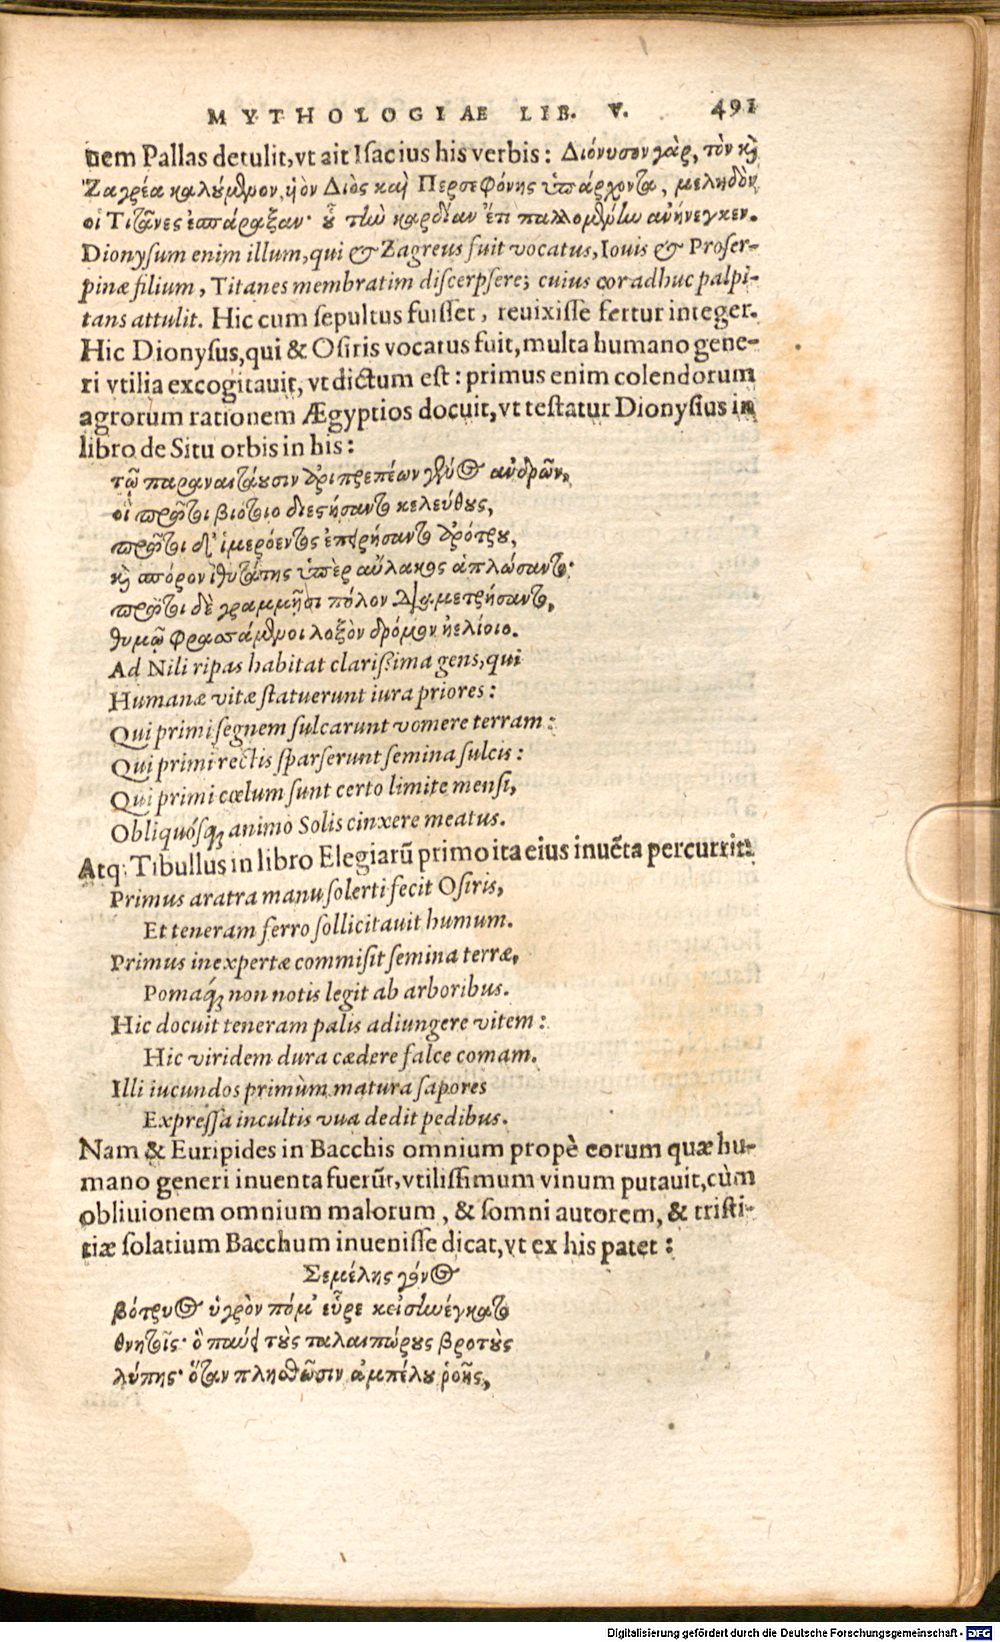 MYTHOLOGIAE LIB. V. 491
nem Pallas detulit, vt ait Isacius his verbis: Διόνυσον γὰρ, τὸν κỳ
Ζαγρέα καλούμενον, ἡὸν Διὸς καὶ Περσεφόνης ὑπάρχοντα, μεληδὸν
οἱ Τιτᾶνες ἐσπάραξαν· οὗ τὴν καρδίαν ἔτι παλλομένην ἀνήνεγκεν.
Dionysum enim illum, qui & Zagreus fuit vocatus, Iouis & Proser-
pinæ filium, Titanes membratim discerpsere; cuius cor adhuc palpi-
tans attulit. Hic cum sepultus fuisset, reuixisse fertur integer.
Hic Dionysus, qui & Osiris vocatus fuit, multa humano gene-
ri vtilia excogitauit, vt dictum est: primus enim colendorum
agrorum rationem Ægyptios docuit, vt testatur Dionysius in
libro de Situ orbis in his:
τῷ παραναιετάουσιν ἀριπρεπέων γένος ἀνδρῶν,
οἳ πρῶτοι βιότοιο διεστήσαντο κελεύθους,
πρῶτοι δ' ἱμερόεντος ἐπειρήσαντο ἀρότρου,
κỳ σπόρον ἰθυτάτης ὑπὲρ αὔλακος ἁπλώσαντο·
πρῶτοι δὲ γραμμῇσι πόλον διεμετρήσαντο,
θυμῷ φρασσάμενοι λοξὸν δρόμον ἠελίοιο.
Ad Nili ripas habitat clarissima gens, qui
Humanæ vitæ statuerunt iura priores:
Qui primi segnem sulcarunt vomere terram:
Qui primi rectis sparserunt semina sulcis:
Qui primi cœlum sunt certo limite mensi,
Obliquósq; animo Solis cinxere meatus.
Atq; Tibullus in libro Elegiarũ primo ita eius inuẽta percurrit:
Primus aratra manu solerti fecit Osiris,
Et teneram ferro sollicitauit humum.
Primus inexpertæ commisit semina terræ,
Pomaq́; non notis legit ab arboribus.
Hic docuit teneram palis adiungere vitem:
Hic viridem dura cædere falce comam.
Illi iucundos primùm matura sapores
Expressa incultis vua dedit pedibus.
Nam & Euripides in Bacchis omnium propè eorum quæ hu-
mano generi inuenta fuerũt, vtilissimum vinum putauit, cùm
obliuionem omnium malorum, & somni autorem, & tristi-
tiæ solatium Bacchum inuenisse dicat, vt ex his patet:
Σεμέλης γόνος
βότρυος ὑγρὸν πόμ' εὗρε κεἰσηνέγκατο
θνητοῖς· ὃ παύει τοὺς ταλαιπώρους βροτοὺς
λύπης· ὅταν πλησθῶσιν ἀμπέλου ῥοῆς,
Digitalisierung gefördert durch die Deutsche Forschungsgemeinschaft - DFG